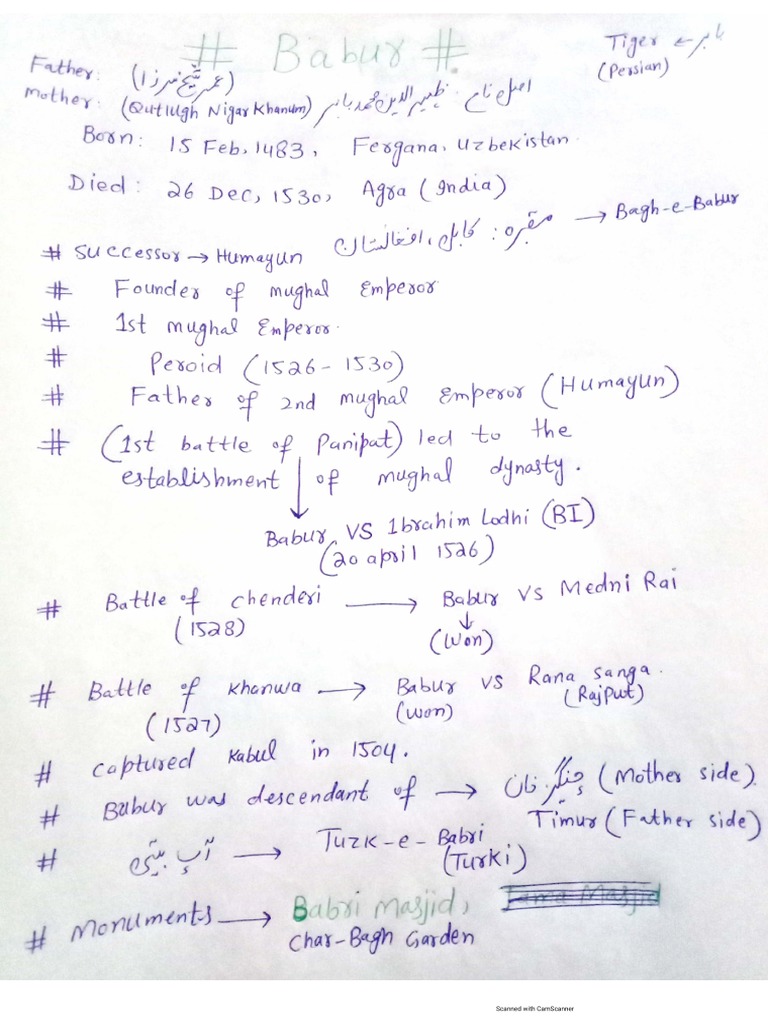 # Babur #
Tiger ← بابر
(Persian)
Father: (عمر شیخ مرزا)
Mother: (Qutlugh Nigar Khanum) اصل نام ظہیر الدین محمد بابر
Born: 15 Feb, 1483, Fergana, Uzbekistan.
Died: 26 Dec, 1530, Agra (India)
# Successor → Humayun مقبرہ: کابل، افغانستان → Bagh-e-Babur
# Founder of mughal Emperor
# 1st mughal Emperor.
# Peroid (1526-1530)
# Father of 2nd mughal Emperor (Humayun)
# (1st battle of Panipat) led to the
establishment of mughal dynasty.
↓
Babur VS Ibrahim Lodhi (BI)
(20 april 1526)
# Battle of chenderi → Babur VS Medni Rai
(1528) ↓
(Won)
# Battle of Khanwa → Babur VS Rana Sanga.
(1527) (Won) (Rajput)
# Captured Kabul in 1504.
# Babur was descendant of → چنگیز خان (Mother side).
Timur (Father side)
# آپ بیتی → Tuzk-e-Babri
(Turki)
# Monuments → Babri Masjid, Jama Masjid
Char-Bagh Garden
Scanned with CamScanner